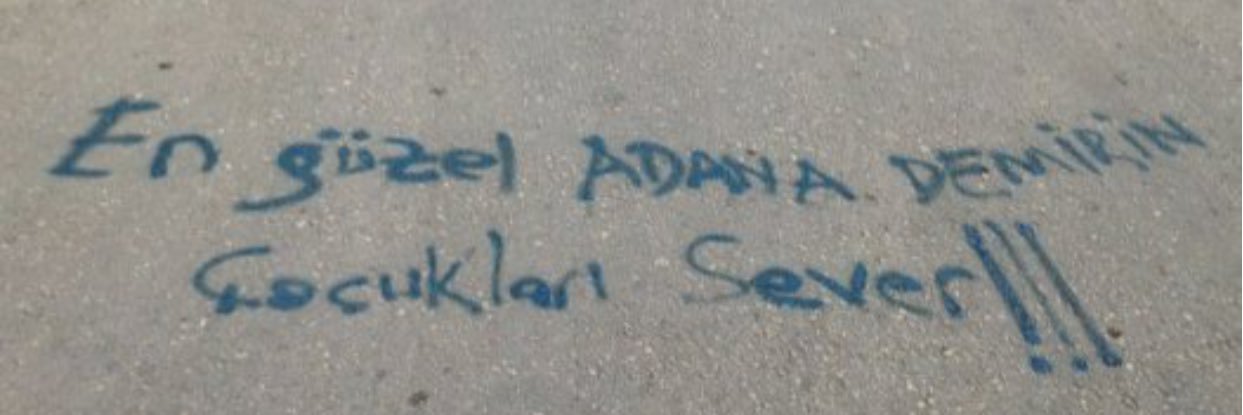 En güzel ADANA DEMİRİN
Çocukları Sever!!!